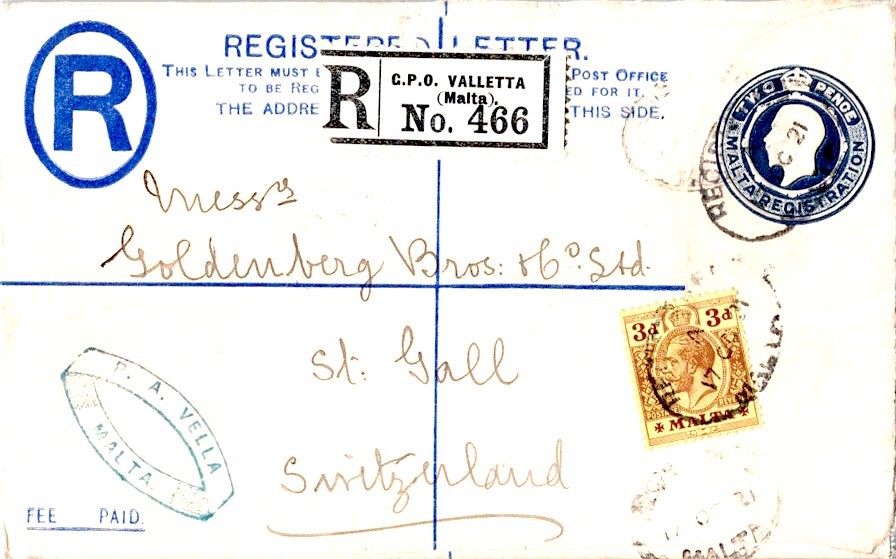 REGISTERED LETTER.
THIS LETTER MUST POST OFFICE
TO BE REG ED FOR IT.
THE ADDRE THIS SIDE.
R
R
G.P.O. VALLETTA
(Malta).
No. 466
TWO PENCE
MALTA REGISTRATION
Messrs
Goldenberg Bros: & Co. Ltd.
St: Gall
Switzerland
3d 3d
MALTA
P. A. VELLA
MALTA.
17 OC 21
MALTA
FEE PAID.